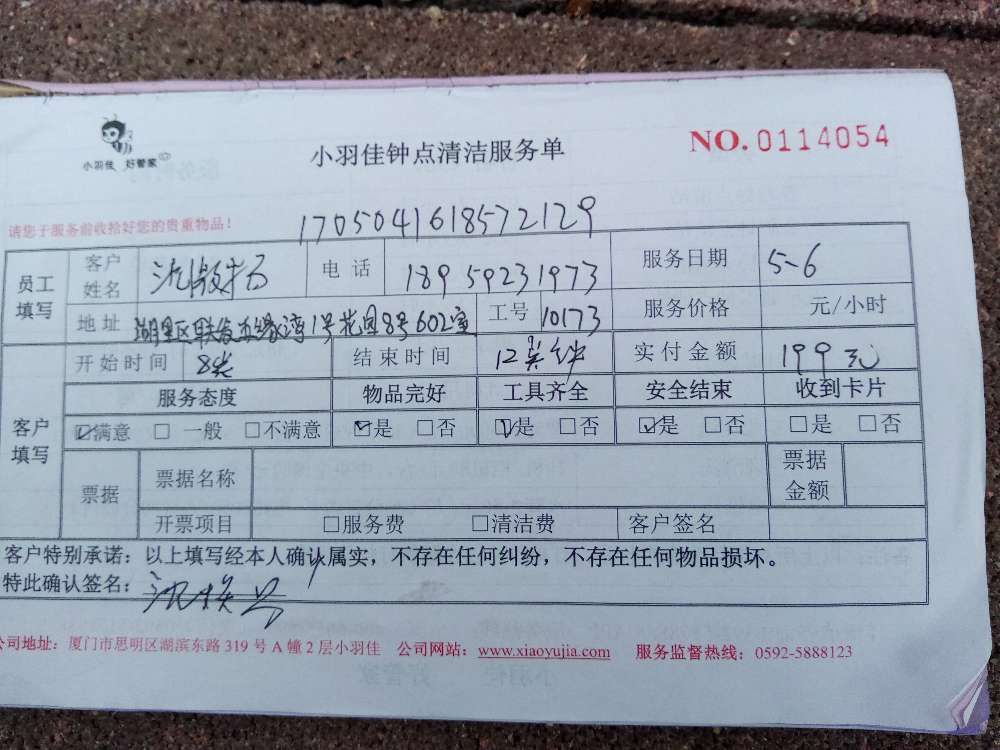 小羽佳 好管家
小羽佳钟点清洁服务单
NO.0114054
请您于服务前收拾好您的贵重物品!
1705041618572129
员工填写 客户姓名 电话 18959231973 服务日期 5-6
地址 湖里区联发五缘湾1号花园8号602室 工号 10173 服务价格 元/小时
客户填写 开始时间 8 结束时间 12 实付金额 199元
服务态度 物品完好 工具齐全 安全结束 收到卡片
☑满意 □一般 □不满意 ☑是 □否 ☑是 □否 ☑是 □否 □是 □否
票据 票据名称 票据金额
开票项目 □服务费 □清洁费 客户签名
客户特别承诺：以上填写经本人确认属实，不存在任何纠纷，不存在任何物品损坏。
特此确认签名：
公司地址：厦门市思明区湖滨东路 319 号 A 幢 2 层小羽佳 公司网站：www.xiaoyujia.com 服务监督热线：0592-5888123